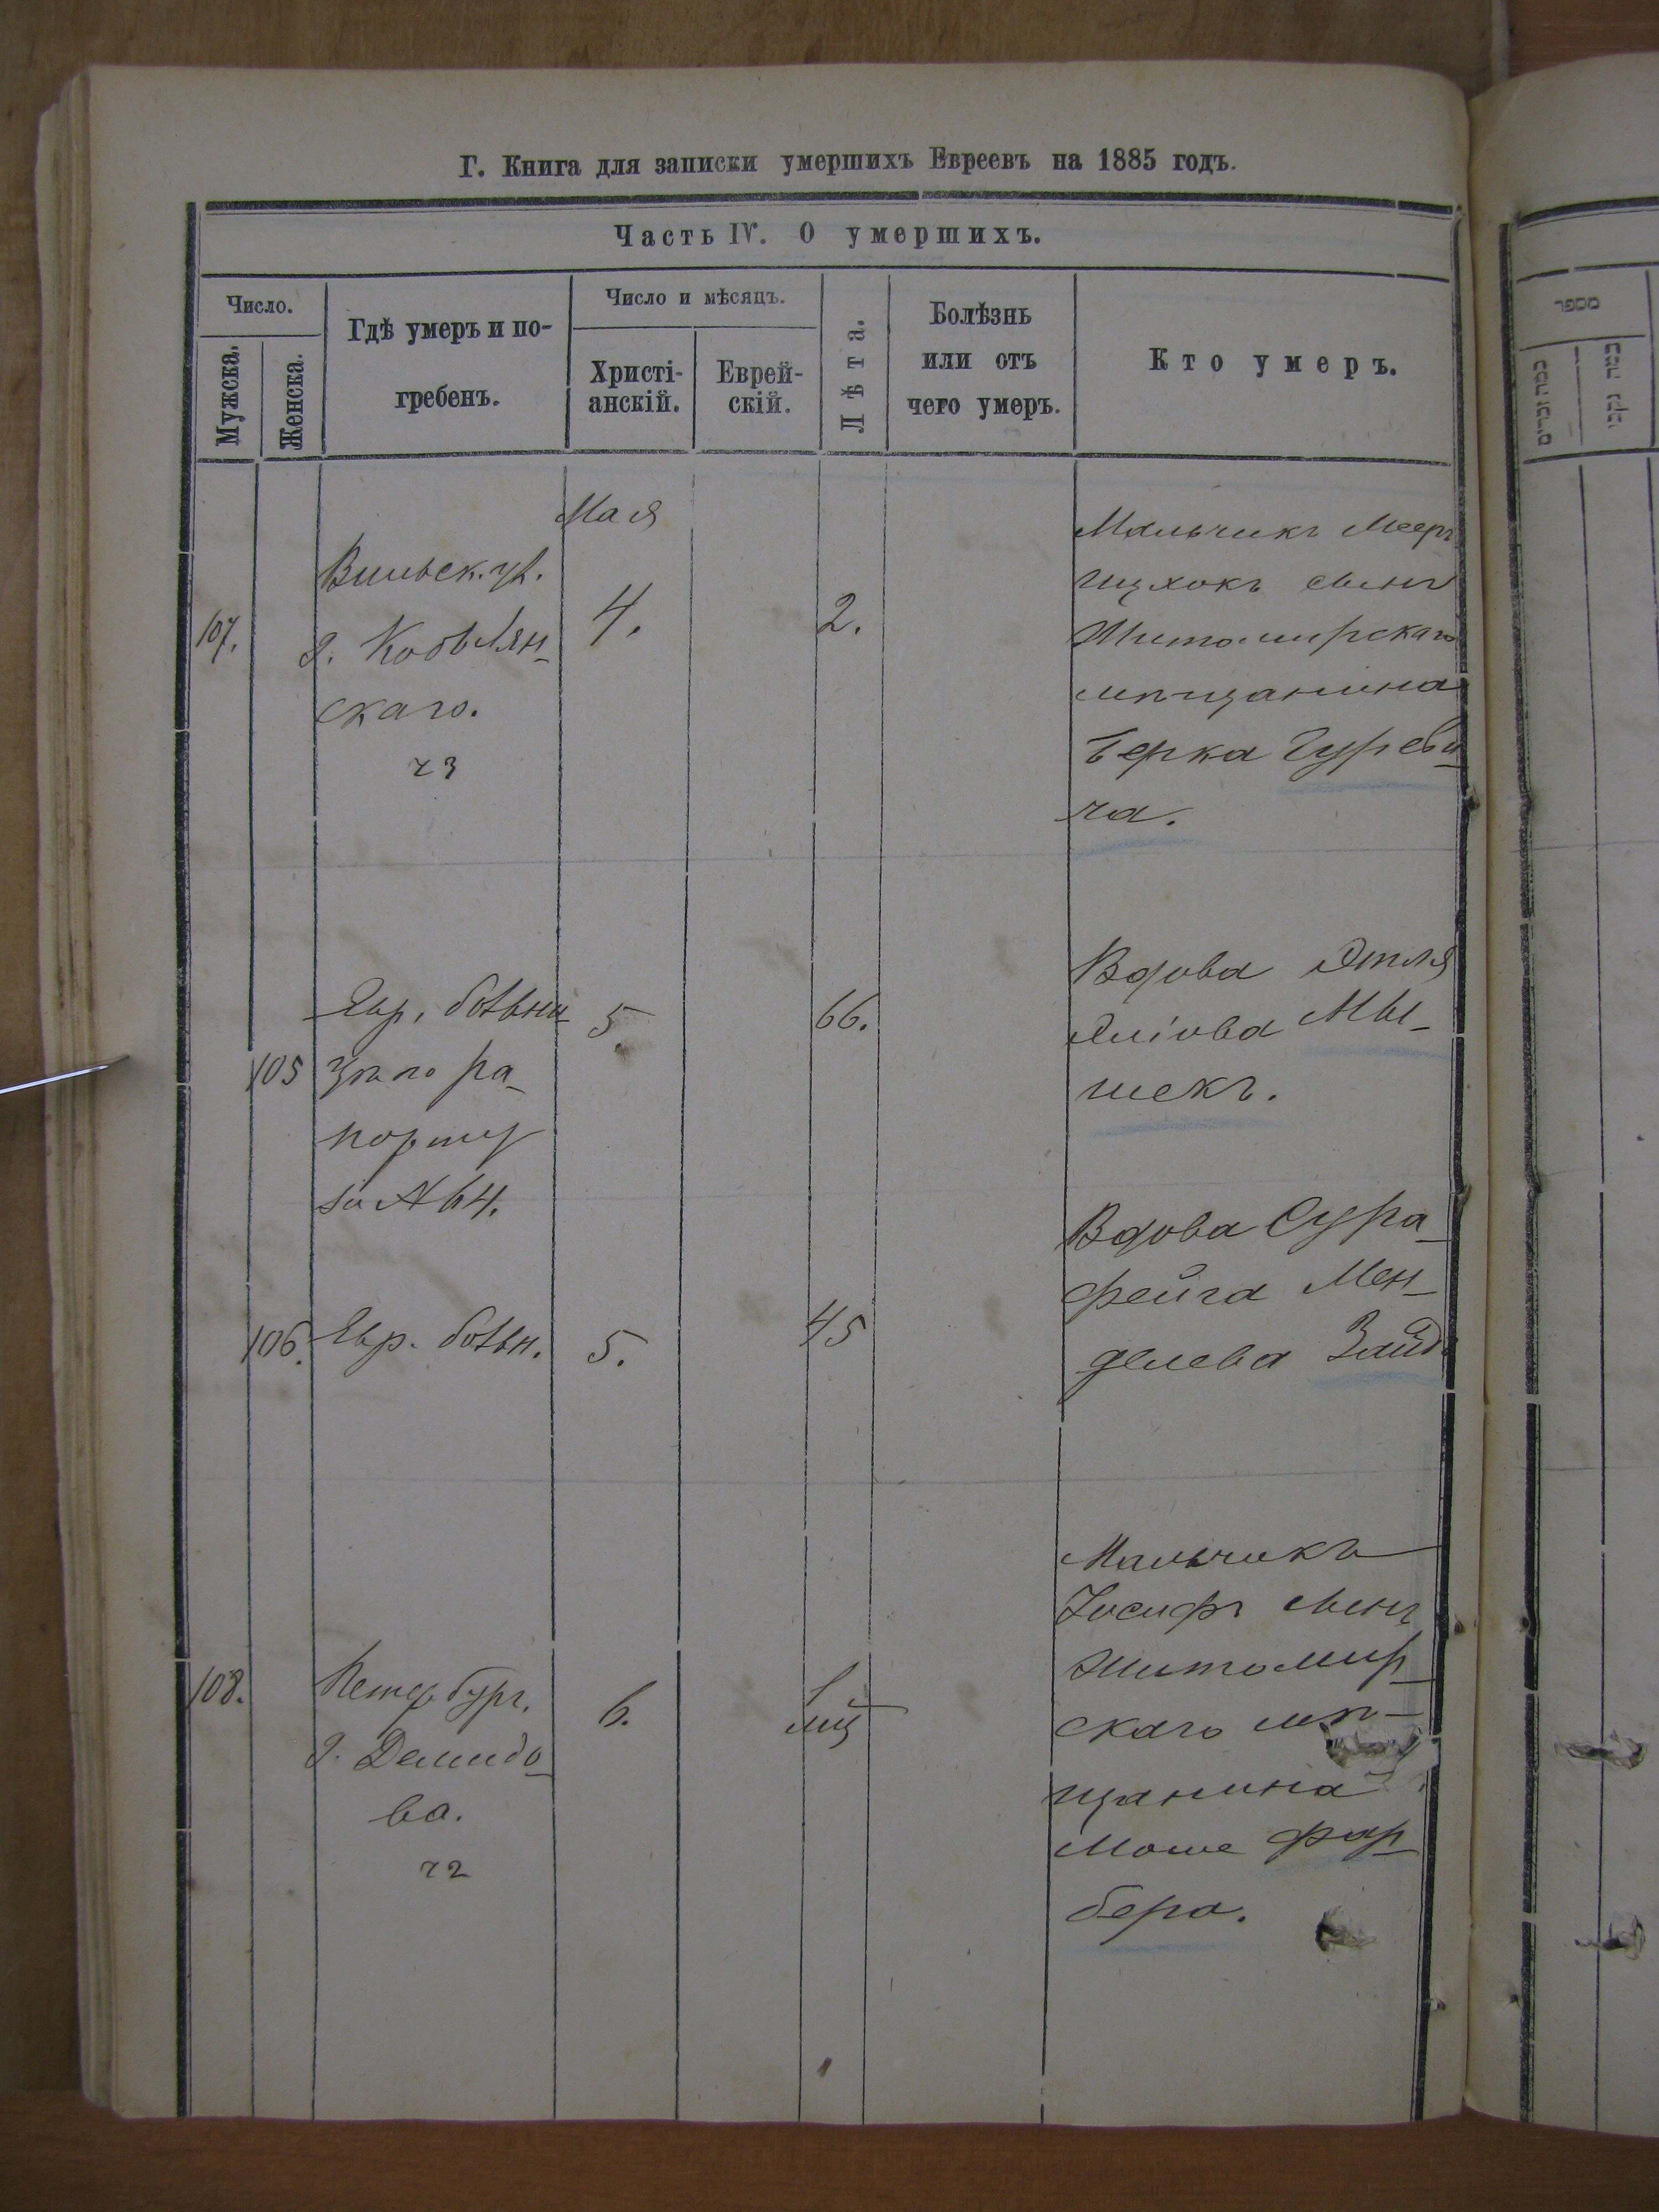 Г. Книга для записки умершихъ Евреевъ на 1885 годъ.
Часть IV. О умершихъ.
Число.
Мужска.
Женска.
Гдѣ умеръ и по-
гребенъ.
Число и мѣсяцъ.
Христі-
анскій.
Еврей-
скій.
Лѣта.
Болѣзнь
или отъ
чего умеръ.
Кто умеръ.
Мая
107.
Вильск. ул.
д. Кобылян-
скаго.
73
4.
2.
Мальчикъ Мееръ
Ицхокъ сынъ
Житомирскаго
мѣщанина
Берка Гуреви-
ча.
105
Евр. больни-
цѣ по ра-
порту
за № 64.
5.
66.
Вдова
Мы-
шекъ.
106.
Евр. больн.
5.
45
Вдова Сура-
Фейга Мен-
делева Зайд
108.
Петербург.
д. Демидо-
ва.
72
6.
1
Мальчикъ
Іосифъ сынъ
Житомир-
скаго мѣ-
щанина
Моше Фар-
бера.